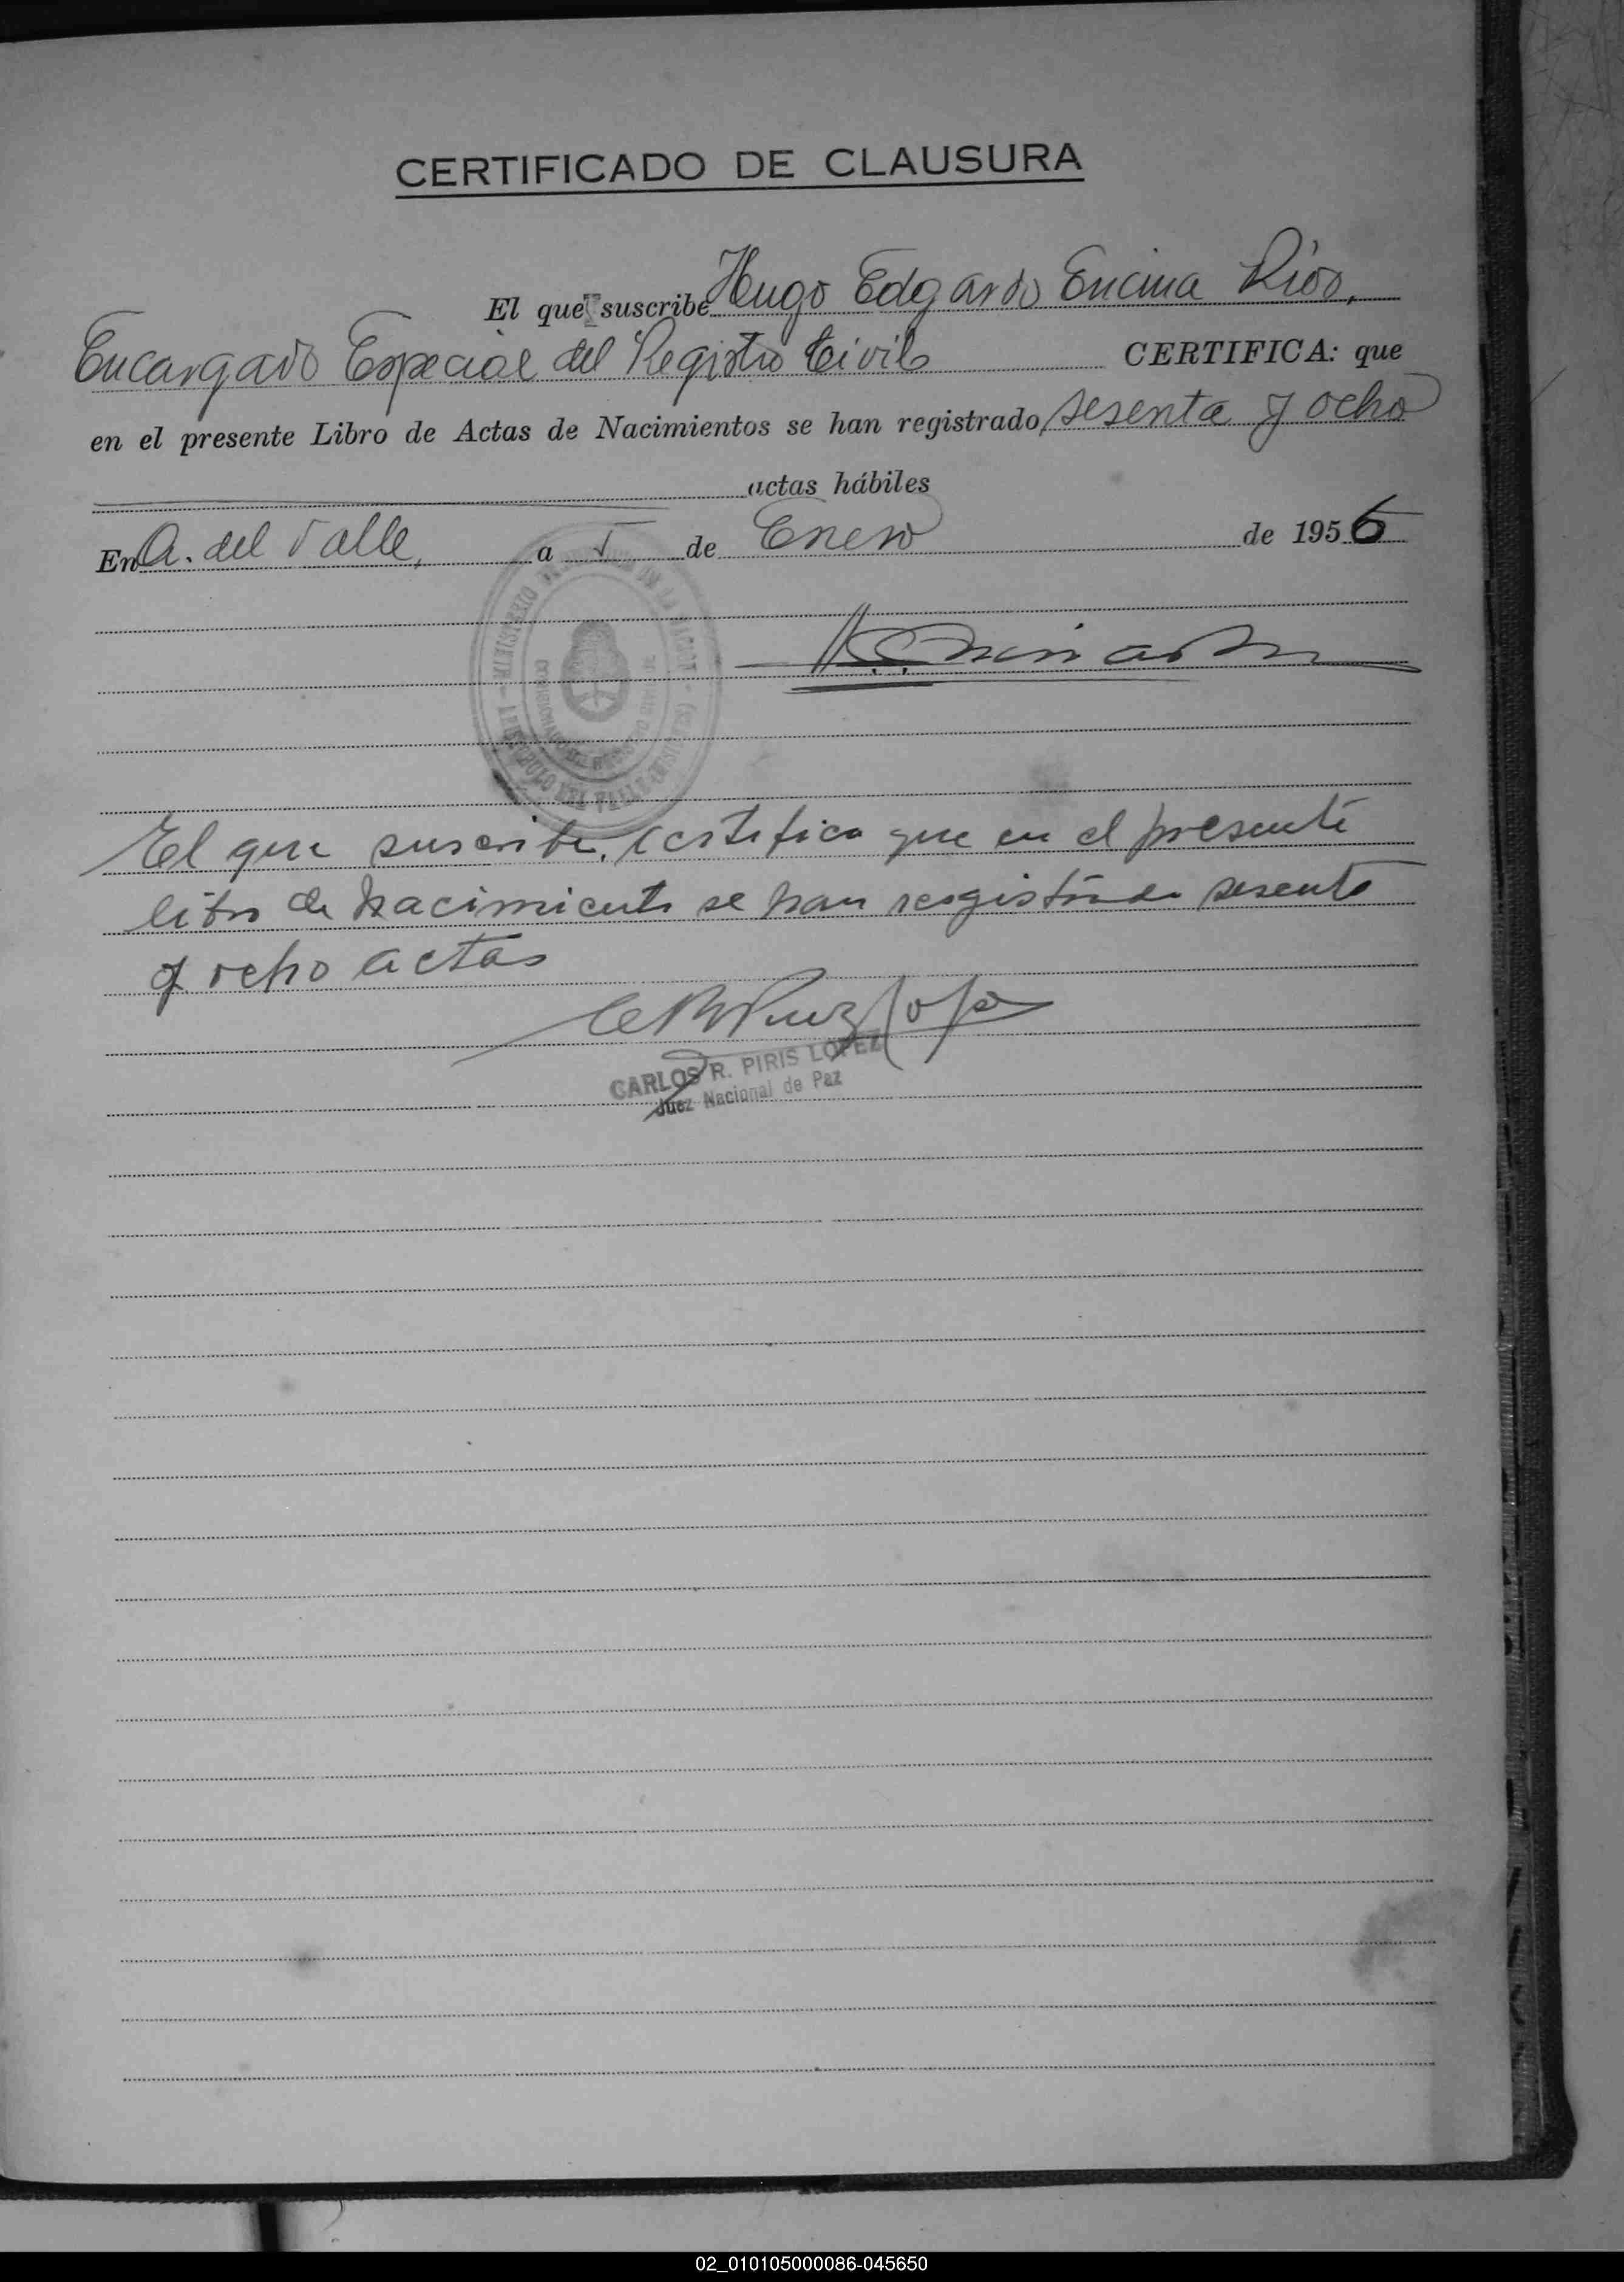 CERTIFICADO DE CLAUSURA
El que suscribe Hugo Edgardo Encina Rios,
Encargado Especial del Registro Civil CERTIFICA: que
en el presente Libro de Actas de Nacimientos se han registrado sesenta y ocho
actas hábiles
En A. del Valle, a de Enero de 1956
El que suscribe, certifica que en el presente
libro de nacimiento se han resgistrado sesenta
y ocho actas
CARLOS R. PIRIS LOPEZ
Juez Nacional de Paz
02_010105000086-045650